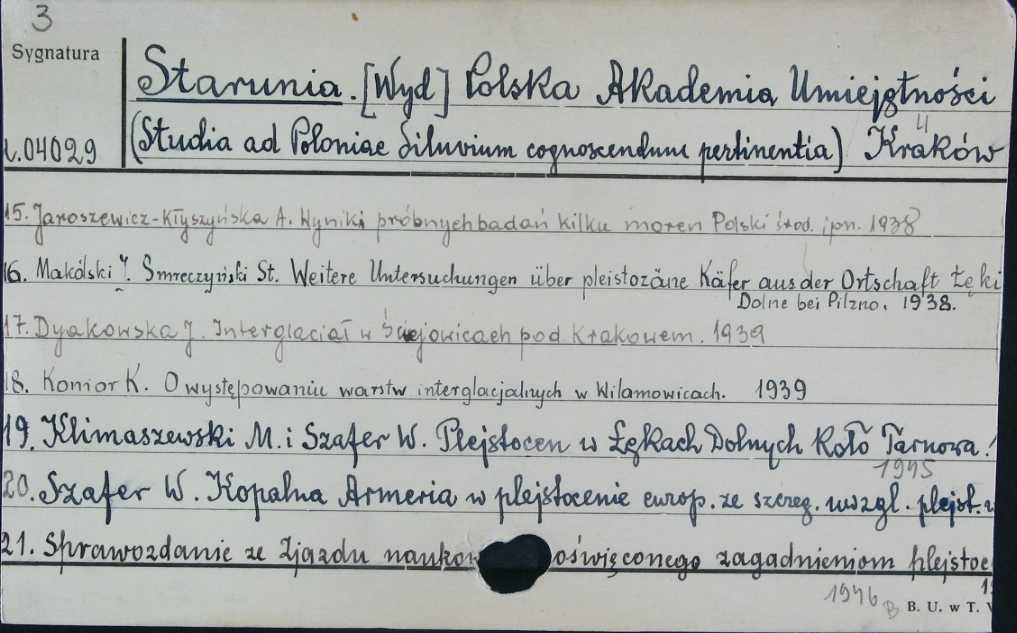 3
Sygnatura
Starunia. [Wyd] Polska Akademia Umiejętności
04029
(Studia ad Poloniae Diluvium cognoscendum pertinentia) Kraków
4
15. Jaroszewicz-Kłyszyńska A. Wyniki próbnych badań kilku moren Polski środ. i pn. 1938
16. Makólski J. Smreczyński St. Weitere Untersuchungen über pleistozäne Käfer aus der Ortschaft Łęki
Dolne bei Pilzno. 1938.
17. Dyakowska J. Interglaciał w Ściejowicach pod Krakowem. 1939
18. Konior K. O występowaniu warstw interglacjalnych w Wilamowicach. 1939
19. Klimaszewski M. i Szafer W. Plejstocen w Łękach Dolnych koło Tarnowa.
1945
20. Szafer W. Kopalna Armeria w plejstocenie europ. ze szczeg. uwzgl. plejst.
21. Sprawozdanie ze Zjazdu nauko oświęconego zagadnieniom plejstoc
1946
B
B. U. w T.